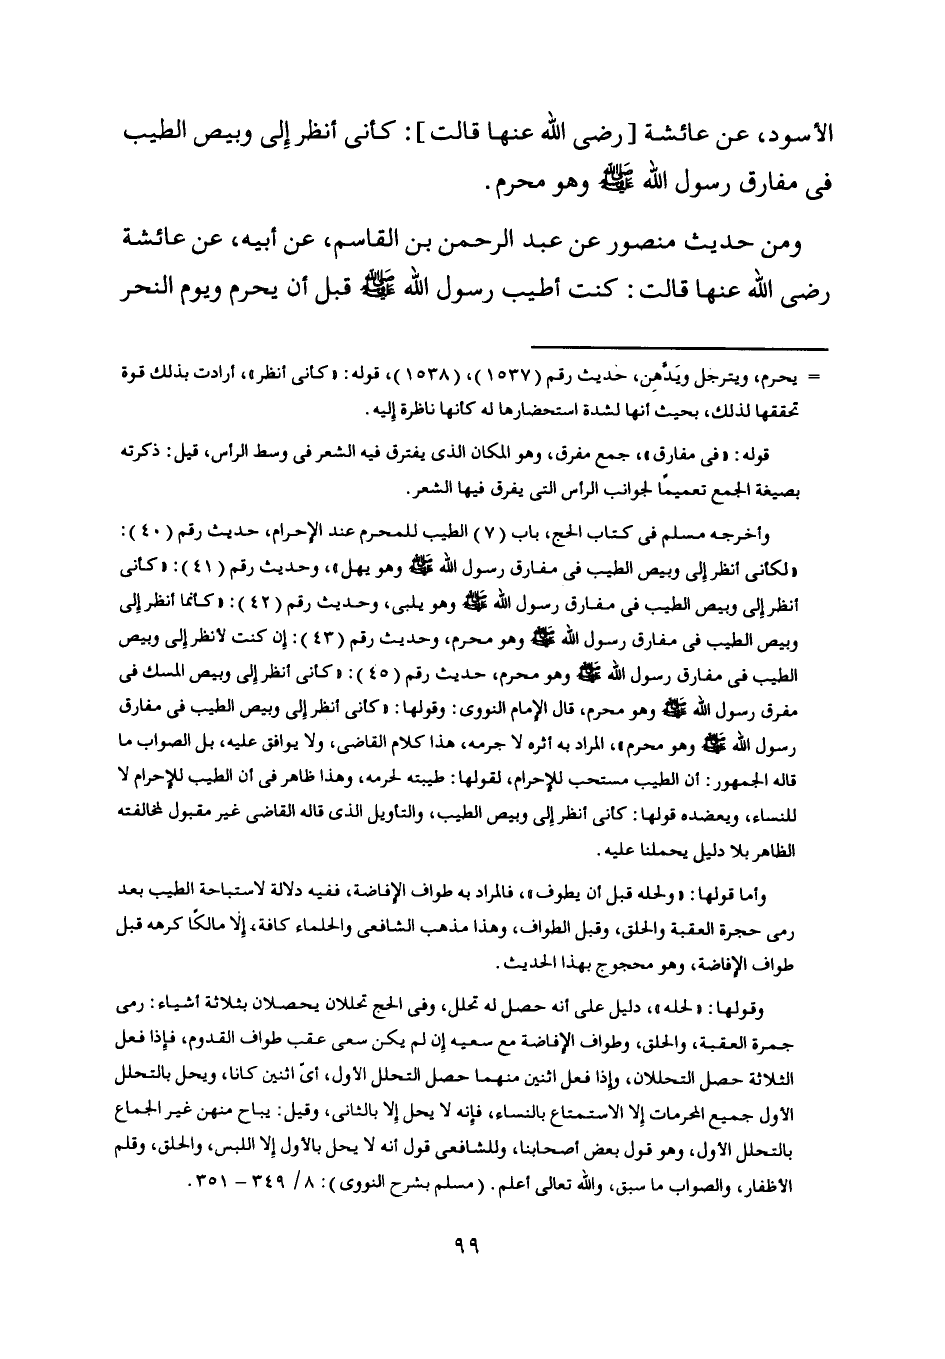 الأسود، عن عائشة [ رضى الله عنها قالت ] : كأنى أنظر إلى وبيص الطيب
فى مفارق رسول الله ﷺ وهو محرم .
ومن حديث منصور عن عبد الرحمن بن القاسم، عن أبيه، عن عائشة
رضى الله عنها قالت : كنت أطيب رسول الله ﷺ قبل أن يحرم ويوم النحر
= يحرم، ويترجل ويَدَّهن، حديث رقم (١٥٣٧)، (١٥٣٨)، قوله: «كأنى أنظر»، أرادت بذلك قوة
تحققها لذلك، بحيث أنها لشدة استحضارها له كأنها ناظرة إليه.
قوله: «فى مفارق»، جمع مفرق، وهو المكان الذى يفترق فيه الشعر فى وسط الرأس، قيل: ذكرته
بصيغة الجمع تعميمًا لجوانب الرأس التى يفرق فيها الشعر.
وأخرجه مسلم فى كتاب الحج، باب (٧) الطيب للمحرم عند الإحرام، حديث رقم (٤٠):
«لكأنى أنظر إلى وبيص الطيب فى مفارق رسول الله ﷺ وهو يهل»، وحديث رقم (٤١): «كأنى
أنظر إلى وبيص الطيب فى مفارق رسول الله ﷺ وهو يلبى، وحديث رقم (٤٢): «كأنما أنظر إلى
وبيص الطيب فى مفارق رسول الله ﷺ وهو محرم، وحديث رقم (٤٣): إن كنت لأنظر إلى وبيص
الطيب فى مفارق رسول الله ﷺ وهو محرم، حديث رقم (٤٥): «كأنى أنظر إلى وبيص المسك فى
مفرق رسول الله ﷺ وهو محرم، قال الإمام النووى: وقولها: «كأنى أنظر إلى وبيص الطيب فى مفارق
رسول الله ﷺ وهو محرم»، المراد به أثره لا جرمه، هذا كلام القاضى، ولا يوافق عليه، بل الصواب ما
قاله الجمهور: أن الطيب مستحب للإحرام، لقولها: طيبته لحرمه، وهذا ظاهر فى أن الطيب للإحرام لا
للنساء، ويعضده قولها: كأنى أنظر إلى وبيص الطيب، والتأويل الذى قاله القاضى غير مقبول لمخالفته
الظاهر بلا دليل يحملنا عليه.
وأما قولها: «ولحله قبل أن يطوف»، فالمراد به طواف الإفاضة، ففيه دلالة لاستباحة الطيب بعد
رمى حجرة العقبة والحلق، وقبل الطواف، وهذا مذهب الشافعى والحلماء كافة، إلا مالكًا كرهه قبل
طواف الإفاضة، وهو محجوج بهذا الحديث.
وقولها: «لحله»، دليل على أنه حصل له تحلل، وفى الحج تحللان يحصلان بثلاثة أشياء: رمى
جمرة العقبة، والحلق، وطواف الإفاضة مع سعيه إن لم يكن سعى عقب طواف القدوم، فإذا فعل
الثلاثة حصل التحللان، وإذا فعل اثنين منهما حصل التحلل الأول، أىّ اثنين كانا، ويحل بالتحلل
الأول جميع المحرمات إلا الاستمتاع بالنساء، فإنه لا يحل إلا بالثانى، وقيل: يباح منهن غير الجماع
بالتحلل الأول، وهو قول بعض أصحابنا، وللشافعى قول أنه لا يحل بالأول إلا اللبس، والحلق، وقلم
الأظفار، والصواب ما سبق، والله تعالى أعلم. (مسلم بشرح النووى): ٨/ ٣٤٩ - ٣٥١.
٩٩